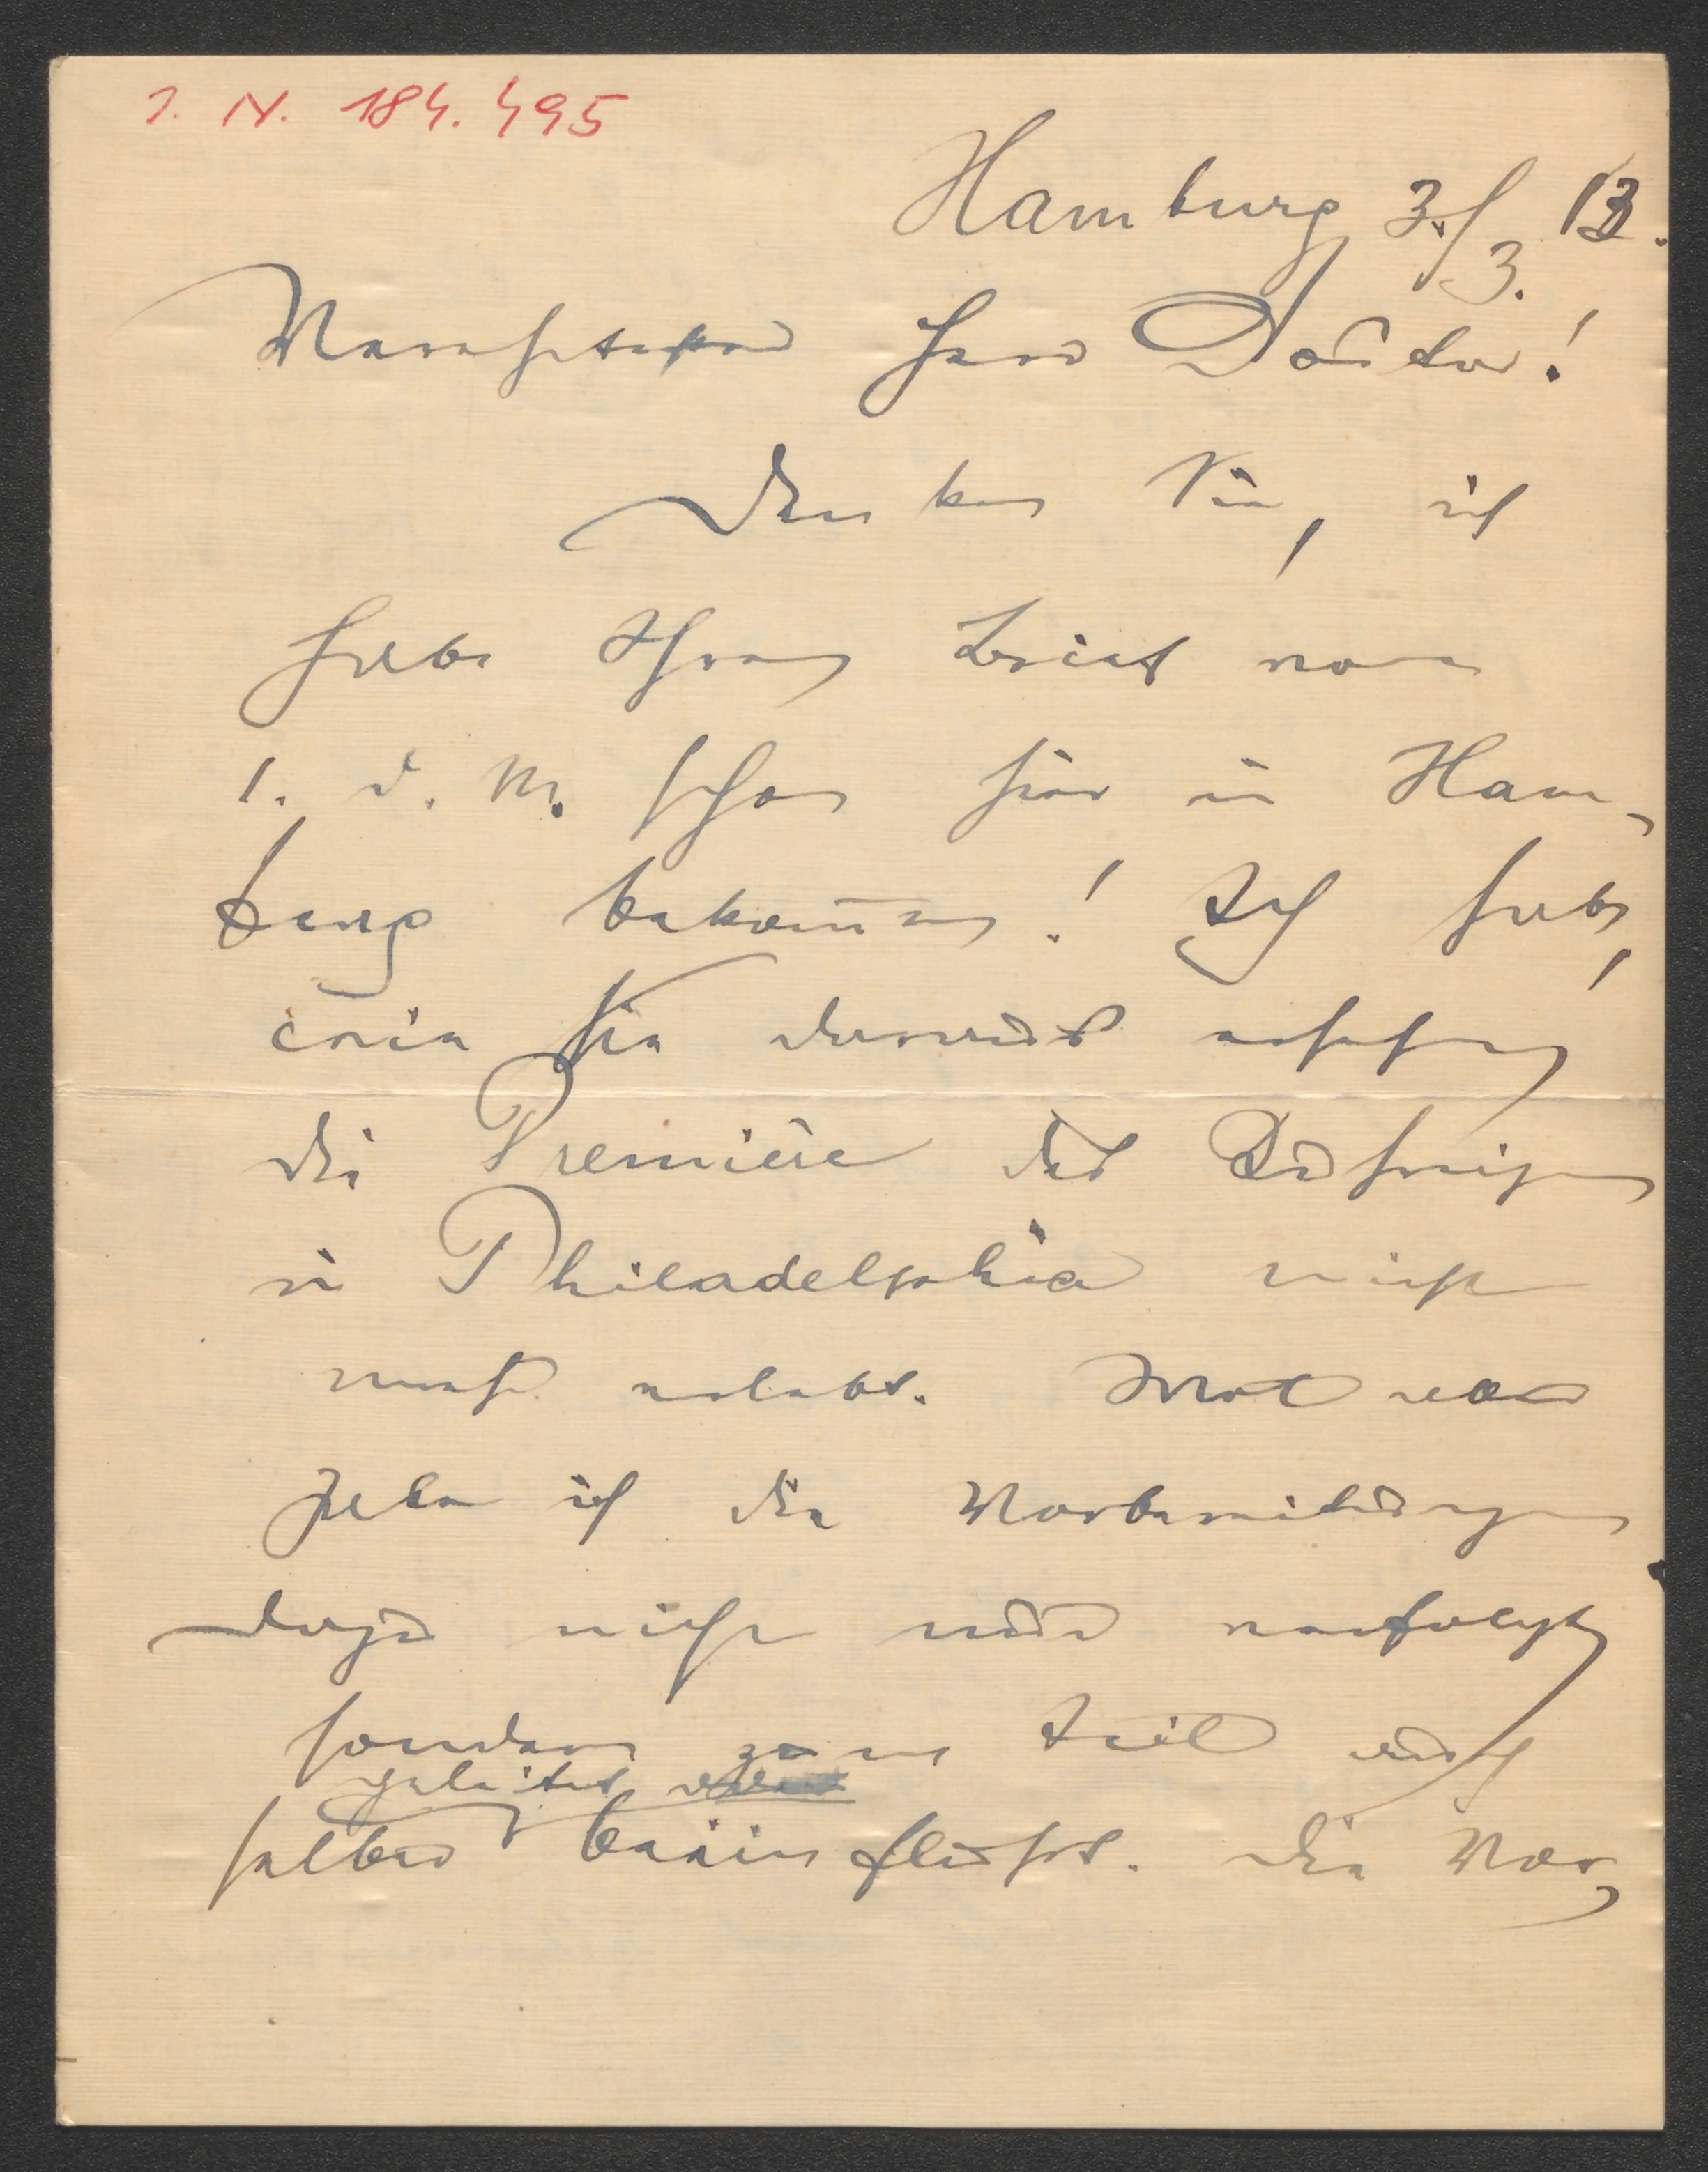 I. N. 184.495
Hamburg 3./3. 13.
Verehrtester Herr Doktor!
Denken Sie, ich
habe Ihren Brief vom
1. d. M. schon hier in Ham-
burg bekommen! Ich habe,
wie Sie daraus ersehen,
die Première des
in Philadelphia nicht
mehr erlebt.
habe ich die Vorbereitungen
dazu nicht nur verfolgt,
sondern zum Teil auch
geleitet
selber beeinflußt. Die Vor-